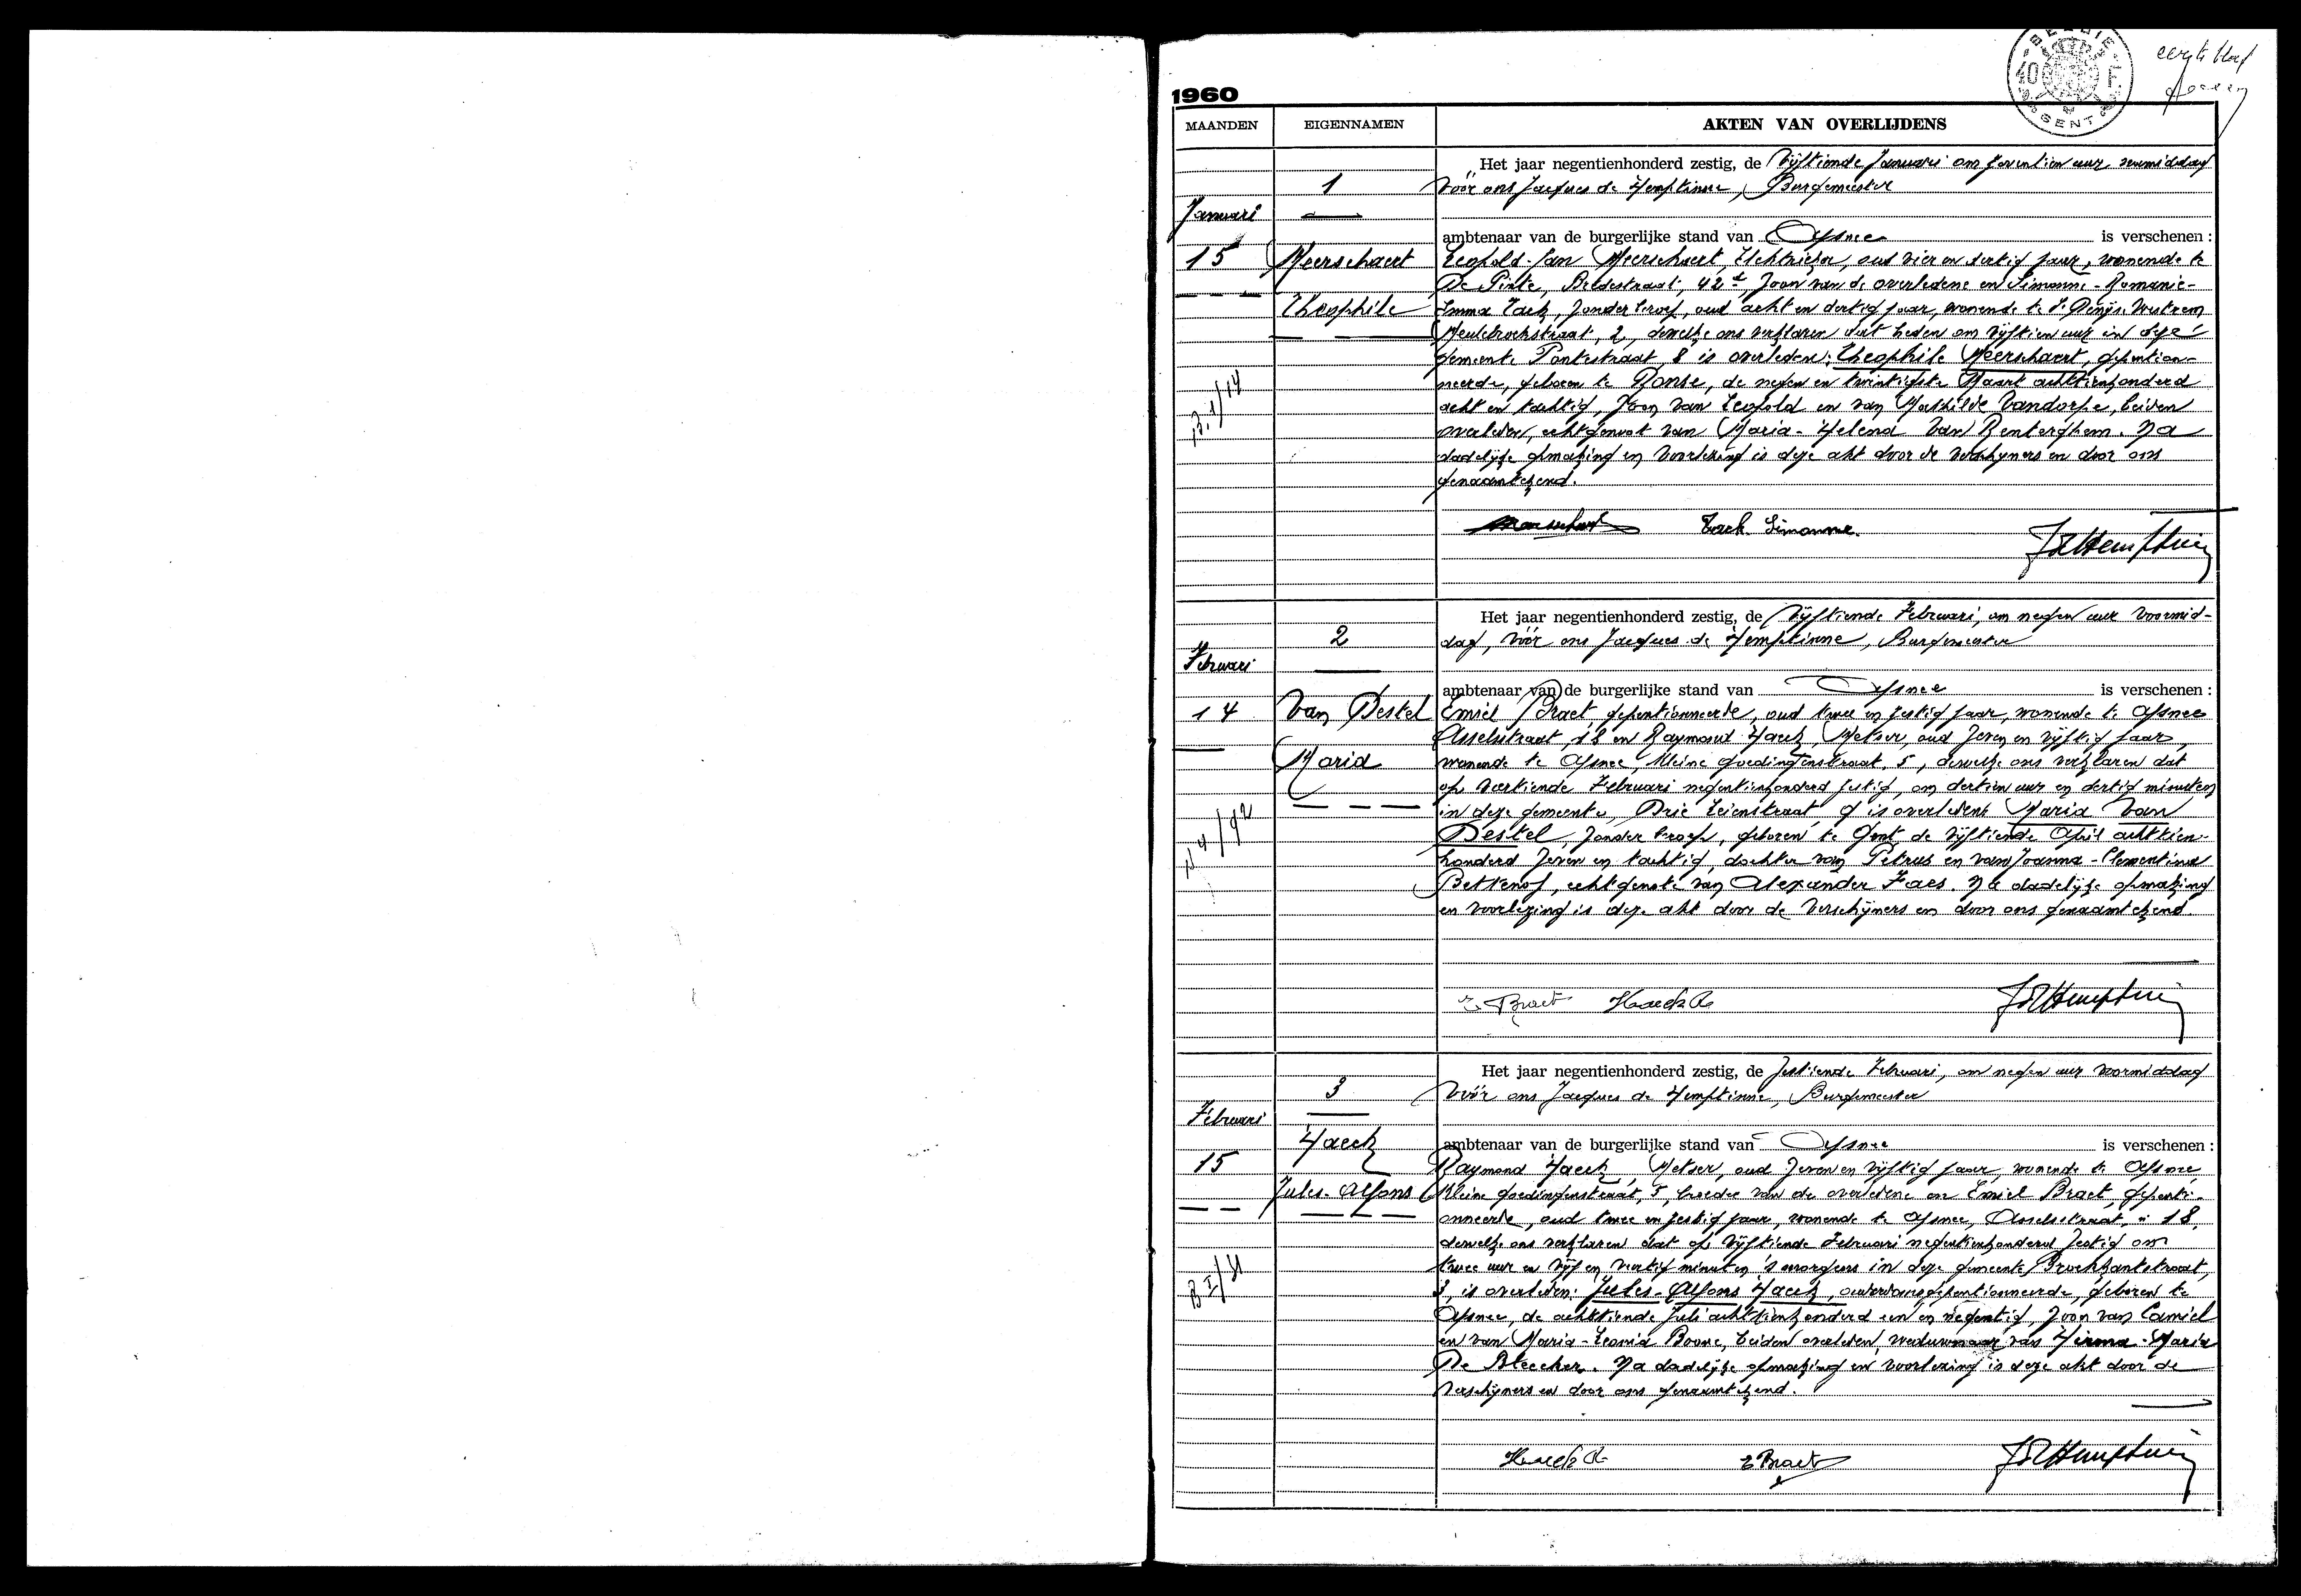 1960
BELGIE
10 F
AGENT
eerste blad
MAANDEN EIGENNAMEN AKTEN VAN OVERLIJDENS
Het jaar negentienhonderd zestig, de vijftiende Januari om zeventien uur namiddag
1 vóór ons Jacques de Hemptinne, Burgemeester
Januari
ambtenaar van de burgerlijke stand van Afsnee is verschenen :
15 Meerschaert Leopold-Jan Meerschaert, Elektrieker, oud vier en dertig jaar, wonende te
De Pinte, Bredestraat, 42, zoon van de overledene en Simonne-Romanie-
Theophile Emma Tack, zonder beroep, oud acht en dertig jaar, wonende te St Denijs-Westrem
Meulebroekstraat, 2, dewelke ons verklaren dat heden om vijftien uur in deze
gemeente Pontestraat, 8 is overleden: Theophile Meerschaert, gepention-
neerde, geboren te Ronse, de negen en twintigste Maart achttienhonderd
acht en tachtig, zoon van Leopold en van Mathilde Vandorpe, beiden
overleden, echtgenoot van Maria-Helena Van Renterghem. Na
dadelijke opmaking en voorlezing is deze akt door de verschijners en door ons
genaamtekend.
Meerschaert Tack Simonne. JdeHemptinne
Het jaar negentienhonderd zestig, de vijftiende Februari, om negen uur voormid-
2 dag, vóór ons Jacques de Hemptinne, Burgemeester
Februari
ambtenaar van de burgerlijke stand van Afsnee is verschenen :
14 Van Destel Emiel Braet, gepentionneerde, oud twee en zestig jaar, wonende te Afsnee
Asselsstraat, 18 en Raymond Haeck, Metser, oud zeven en vijftig jaar,
Maria wonende te Afsnee, Kleine Goedingenstraat, 5, dewelke ons verklaren dat
op veertiende Februari negentienhonderd zestig, om dertien uur en dertig minuten
in deze gemeente, Drie Leienstraat, 9 is overleden: Maria Van
Destel, zonder beroep, geboren te Gent de vijftiende April achttien-
honderd zeven en tachtig, dochter van Petrus en van Joanna-Clementina
Bettenof, echtgenote van Alexander Faes. Na dadelijke opmaking
en voorlezing is deze akt door de verschijners en door ons genaamtekend.
E. Braet Haeck R JdeHemptinne
Het jaar negentienhonderd zestig, de zestiende Februari, om negen uur voormiddag
3 vóór ons Jacques de Hemptinne, Burgemeester
Februari
Haeck ambtenaar van de burgerlijke stand van Afsnee is verschenen :
15 Raymond Haeck, Metser, oud zeven en vijftig jaar, wonende te Afsnee,
Jules-Alfons Kleine Goedingenstraat, 5, broeder van de overledene en Emiel Braet, gepenti-
onneerde, oud twee en zestig jaar, wonende te Afsnee, Asselsstraat, 18,
dewelke ons verklaren dat op vijftiende Februari negentienhonderd zestig om
twee uur en vijf en veertig minuten 's morgens in deze gemeente Broekkantstraat,
8, is overleden: Jules-Alfons Haeck, ouderdomsgepentionneerde, geboren te
Afsnee, de achttiende Juli achttienhonderd een en negentig, zoon van Camiel
en van Maria-Leonia Boone, beiden overleden, weduwnaar van Hirma-Maria
De Bleecker. Na dadelijke opmaking en voorlezing is deze akt door de
verschijners en door ons genaamtekend.
Haeck R E Braet JdeHemptinne